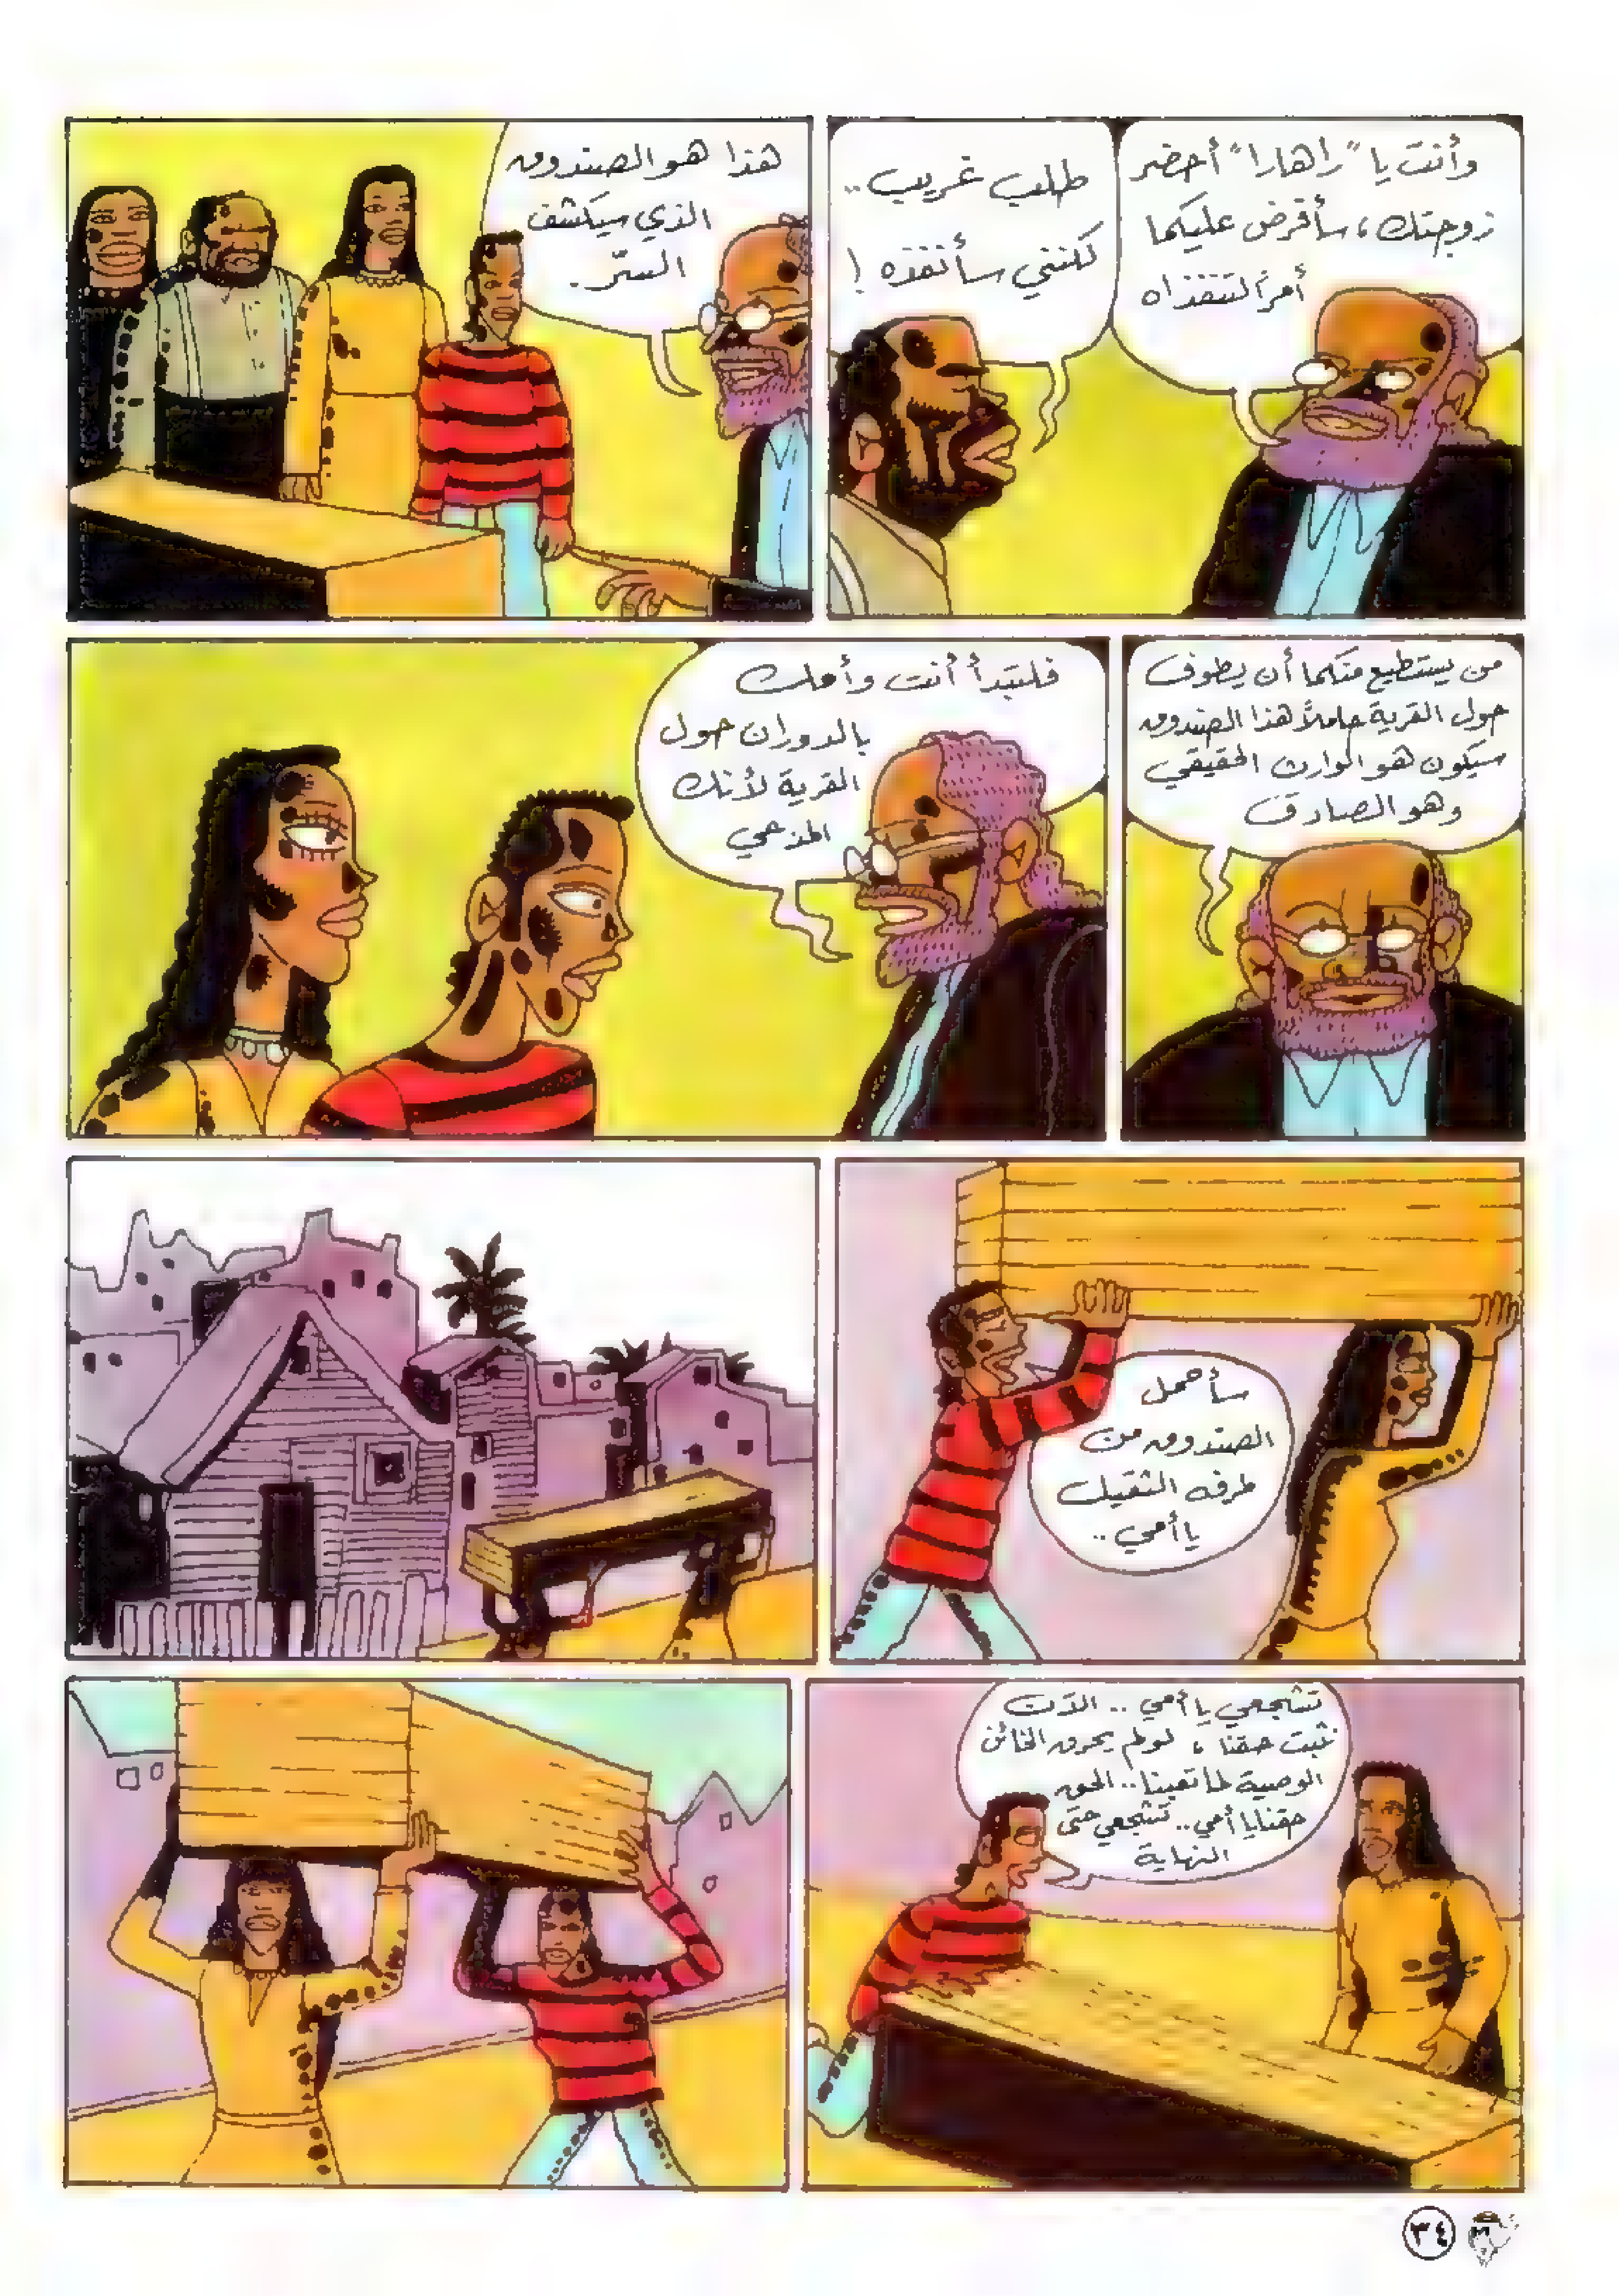 وأنت يا "راهارا" أحضر
زوجتك، سأفرض عليكما
أمراً لتنفذاه
طلب غريب..
لكنني سأنفذه!
هذا هو الصندوق
الذي سيكشف
السّر.
من يستطيع منكما أن يطوف
حول القرية حاملاً هذا الصندوق
سيكون هو الوارث الحقيقي
وهو الصادق
فلتبدأ أنت وأمك
بالدوران حول
القرية لأنك
المدعي
سأحمل
الصندوق من
طرفه الثقيل
يا أمي..
تشجعي يا أمي.. الآن
نثبت حقنا، لو لم يحرق الخائن
الوصية لما تعبنا.. الحق
حقنا يا أمي.. تشجعي حتى
النهاية
٣٤